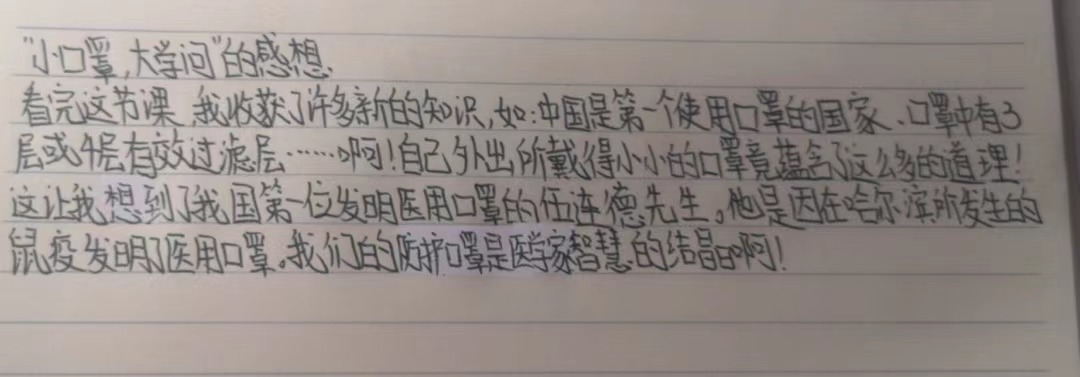 "小口罩,大学问"的感想
看完这节课,我收获了许多新的知识,如:中国是第一个使用口罩的国家、口罩中有3
层或4层有效过滤层……啊!自己外出所戴得小小的口罩竟蕴含了这么多的道理!
这让我想到了我国第一位发明医用口罩的伍连德先生。他是因在哈尔滨所发生的
鼠疫发明了医用口罩。我们的防护口罩是医学家智慧的结晶啊!